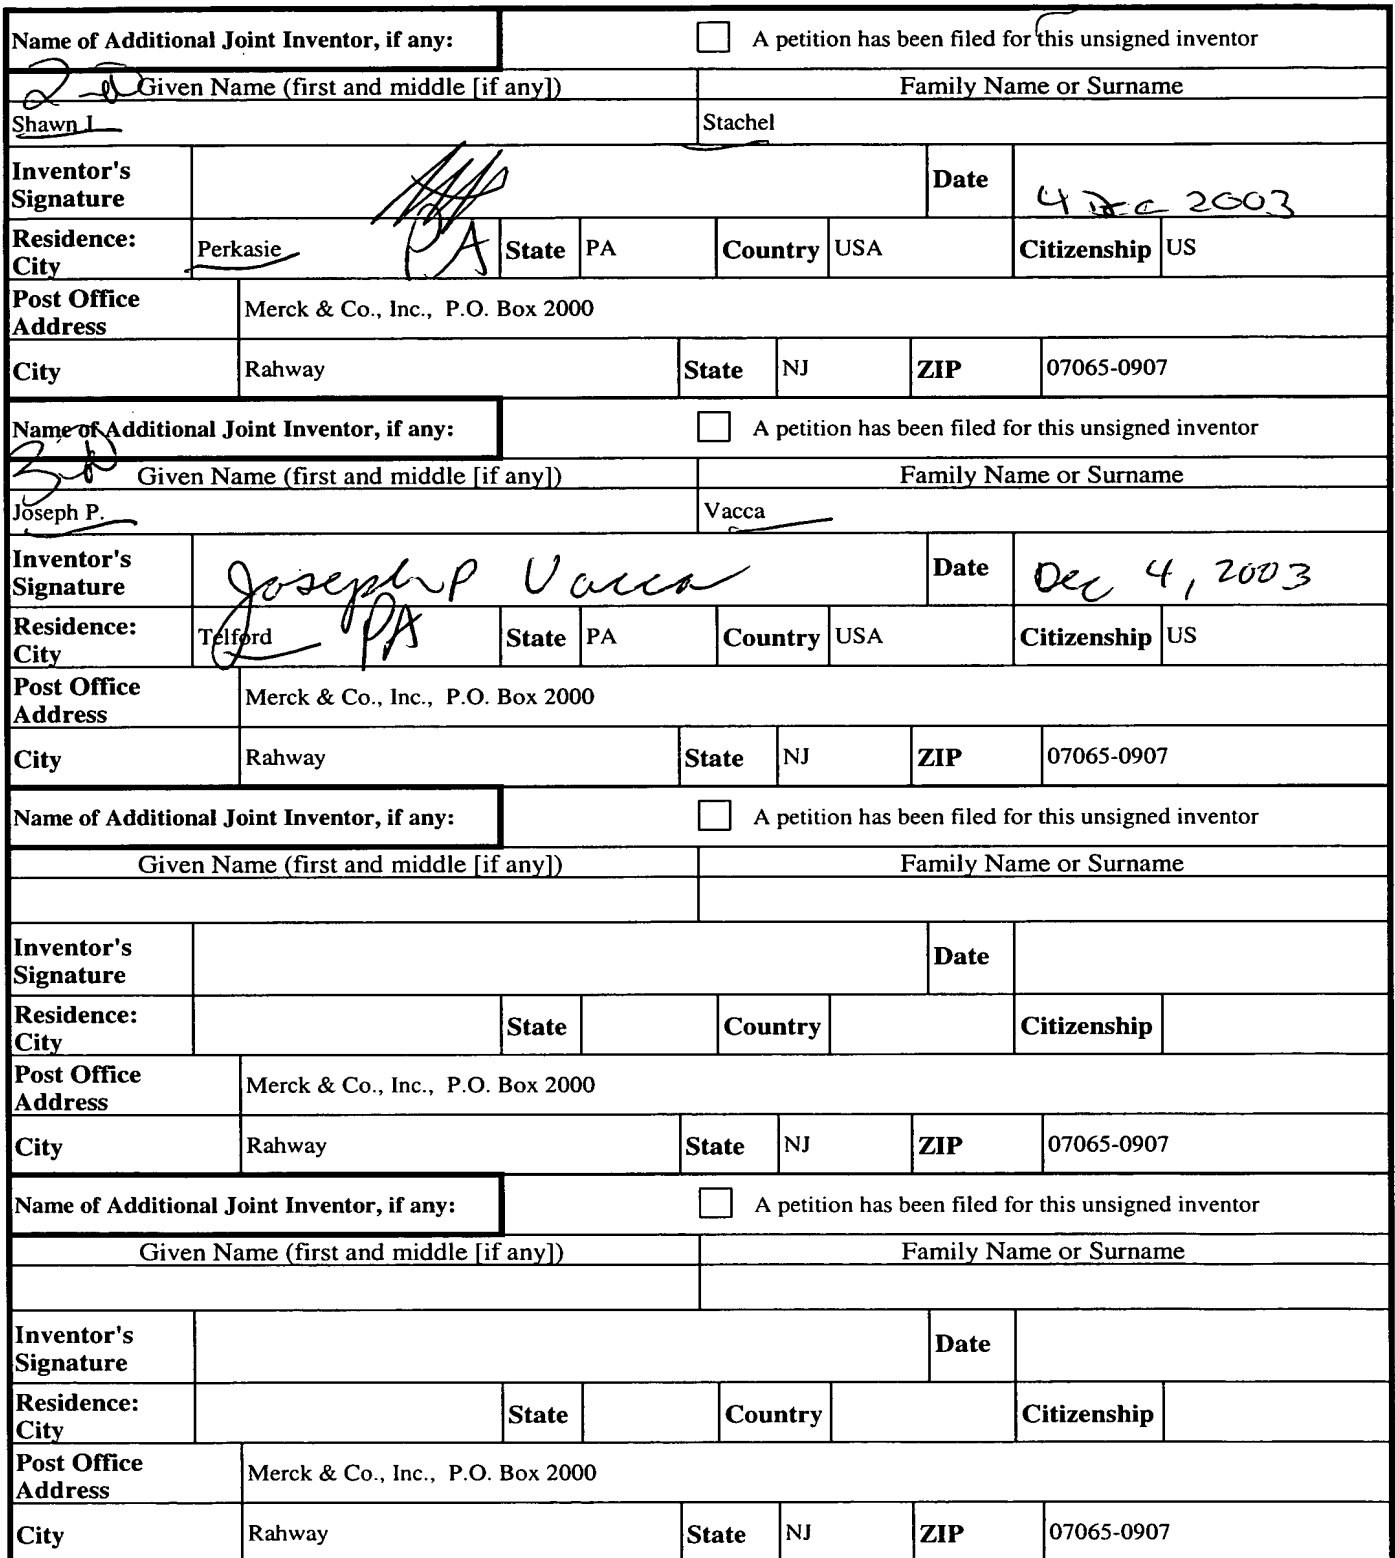 Name of Additional Joint Inventor, if any: A petition has been filed for this unsigned inventor
Given Name (first and middle [if any]) Family Name or Surname
Shawn J. Stachel
Inventor's Signature Date 4 Dec 2003
Residence: City Perkasie PA State PA Country USA Citizenship US
Post Office Address Merck & Co., Inc., P.O. Box 2000
City Rahway State NJ ZIP 07065-0907
Name of Additional Joint Inventor, if any: A petition has been filed for this unsigned inventor
Given Name (first and middle [if any]) Family Name or Surname
Joseph P. Vacca
Inventor's Signature Joseph P Vacca Date Dec 4, 2003
Residence: City Telford PA State PA Country USA Citizenship US
Post Office Address Merck & Co., Inc., P.O. Box 2000
City Rahway State NJ ZIP 07065-0907
Name of Additional Joint Inventor, if any: A petition has been filed for this unsigned inventor
Given Name (first and middle [if any]) Family Name or Surname
Inventor's Signature Date
Residence: City State Country Citizenship
Post Office Address Merck & Co., Inc., P.O. Box 2000
City Rahway State NJ ZIP 07065-0907
Name of Additional Joint Inventor, if any: A petition has been filed for this unsigned inventor
Given Name (first and middle [if any]) Family Name or Surname
Inventor's Signature Date
Residence: City State Country Citizenship
Post Office Address Merck & Co., Inc., P.O. Box 2000
City Rahway State NJ ZIP 07065-0907